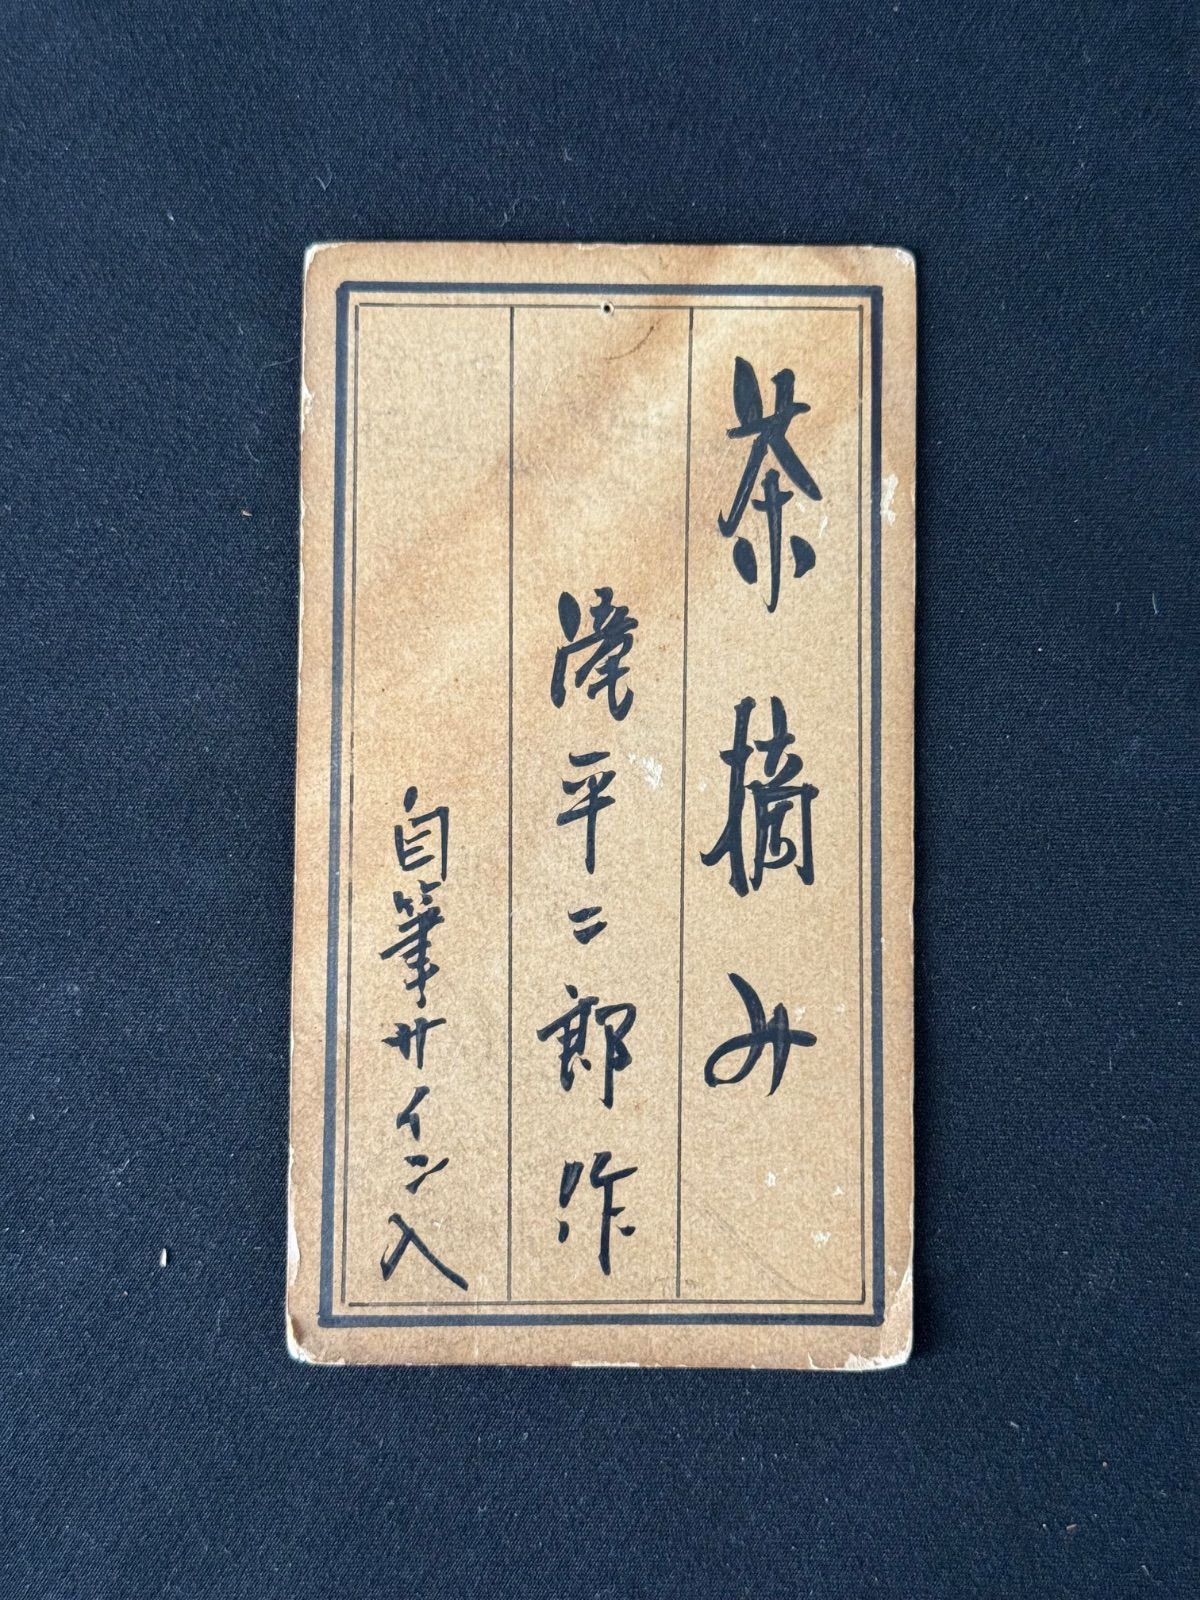 茶摘み
滝平二郎作
自筆サイン入